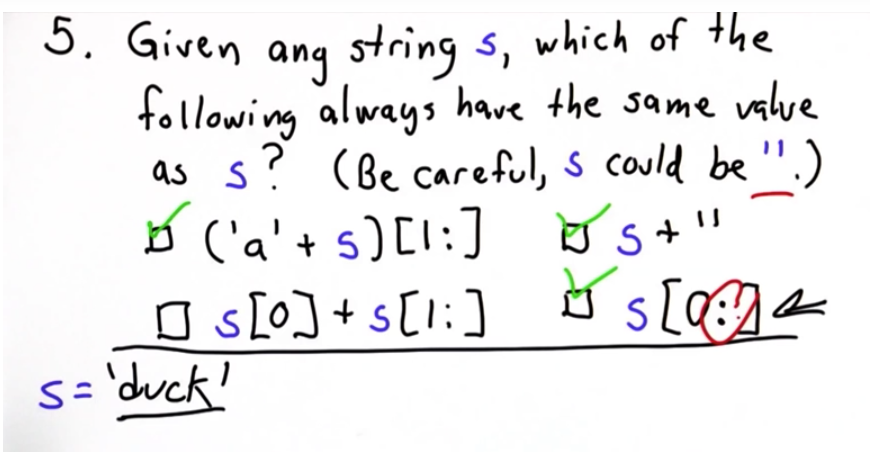 5. Given any string s, which of the
following always have the same value
as s? (Be careful, s could be ''.)
('a' + s)[1:] s + ''
s[0] + s[1:] s[0:]
s = 'duck'